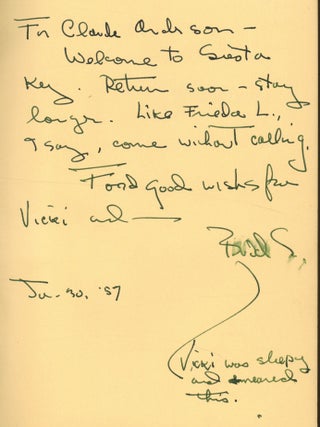 For Claude Anderson –
Welcome to Siesta
Key. Return soon – stay
longer. Like Frieda L.,
I say, come without calling.
Fond good wishes from
Vicki and —
David S.
Jan. 30, '87
Vicki was sleepy
and smeared
this.